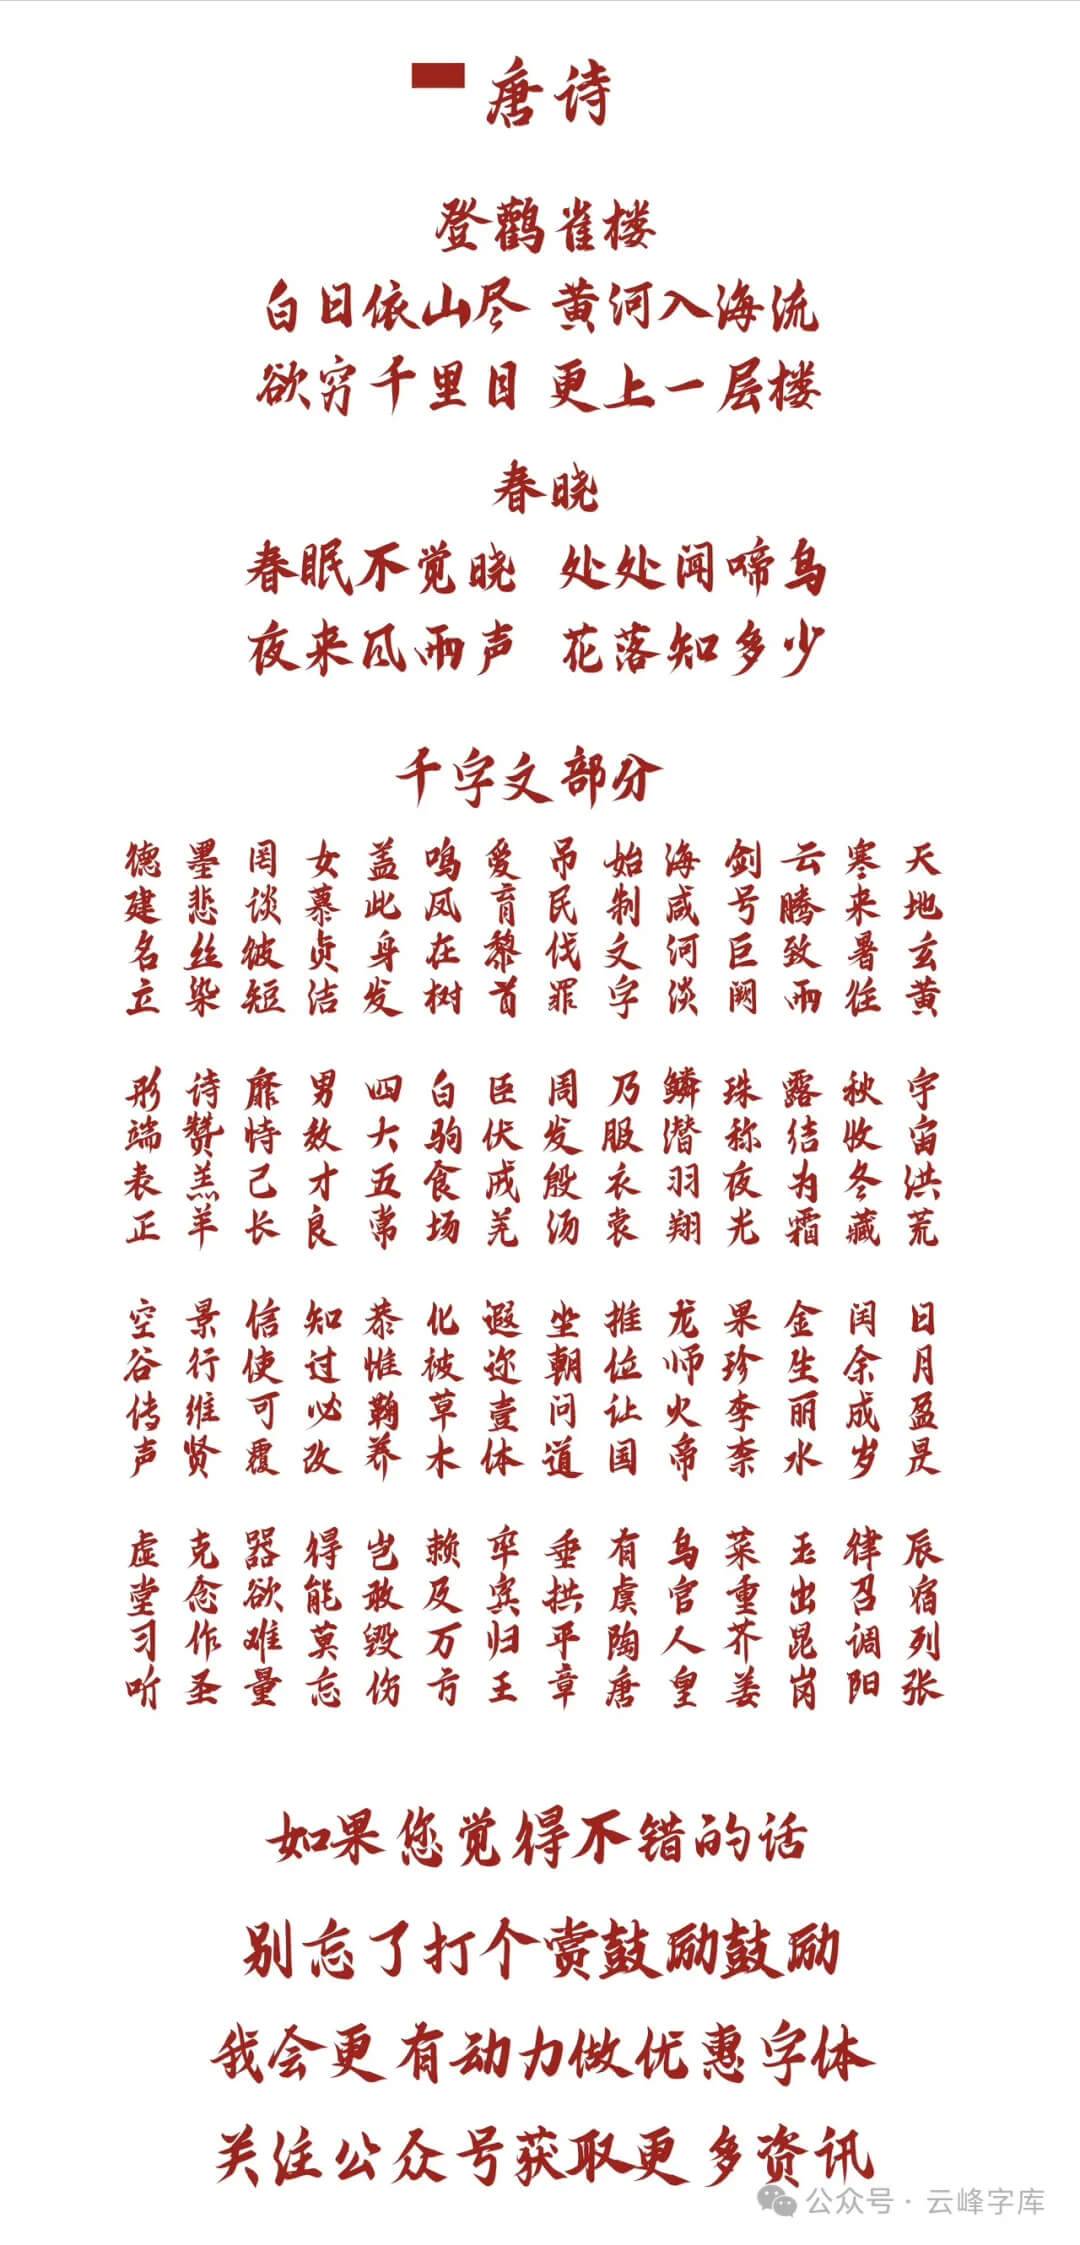 唐诗
登鹳雀楼
白日依山尽 黄河入海流
欲穷千里目 更上一层楼
春晓
春眠不觉晓 处处闻啼鸟
夜来风雨声 花落知多少
千字文部分
天地玄黄 宇宙洪荒 日月盈昃 辰宿列张
寒来暑往 秋收冬藏 闰余成岁 律召调阳
云腾致雨 露结为霜 金生丽水 玉出昆岗
剑号巨阙 珠称夜光 果珍李柰 菜重芥姜
海咸河淡 鳞潜羽翔 龙师火帝 鸟官人皇
始制文字 乃服衣裳 推位让国 有虞陶唐
吊民伐罪 周发殷汤 坐朝问道 垂拱平章
爱育黎首 臣伏戎羌 遐迩壹体 率宾归王
鸣凤在树 白驹食场 化被草木 赖及万方
盖此身发 四大五常 恭惟鞠养 岂敢毁伤
女慕贞洁 男效才良 知过必改 得能莫忘
罔谈彼短 靡恃己长 信使可覆 器欲难量
墨悲丝染 诗赞羔羊 景行维贤 克念作圣
德建名立 形端表正 空谷传声 虚堂习听
如果您觉得不错的话
别忘了打个赏鼓励鼓励
我会更有动力做优惠字体
关注公众号获取更多资讯
公众号·云峰字库